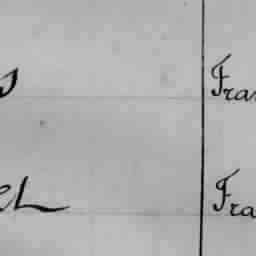 s Fra
el Fra